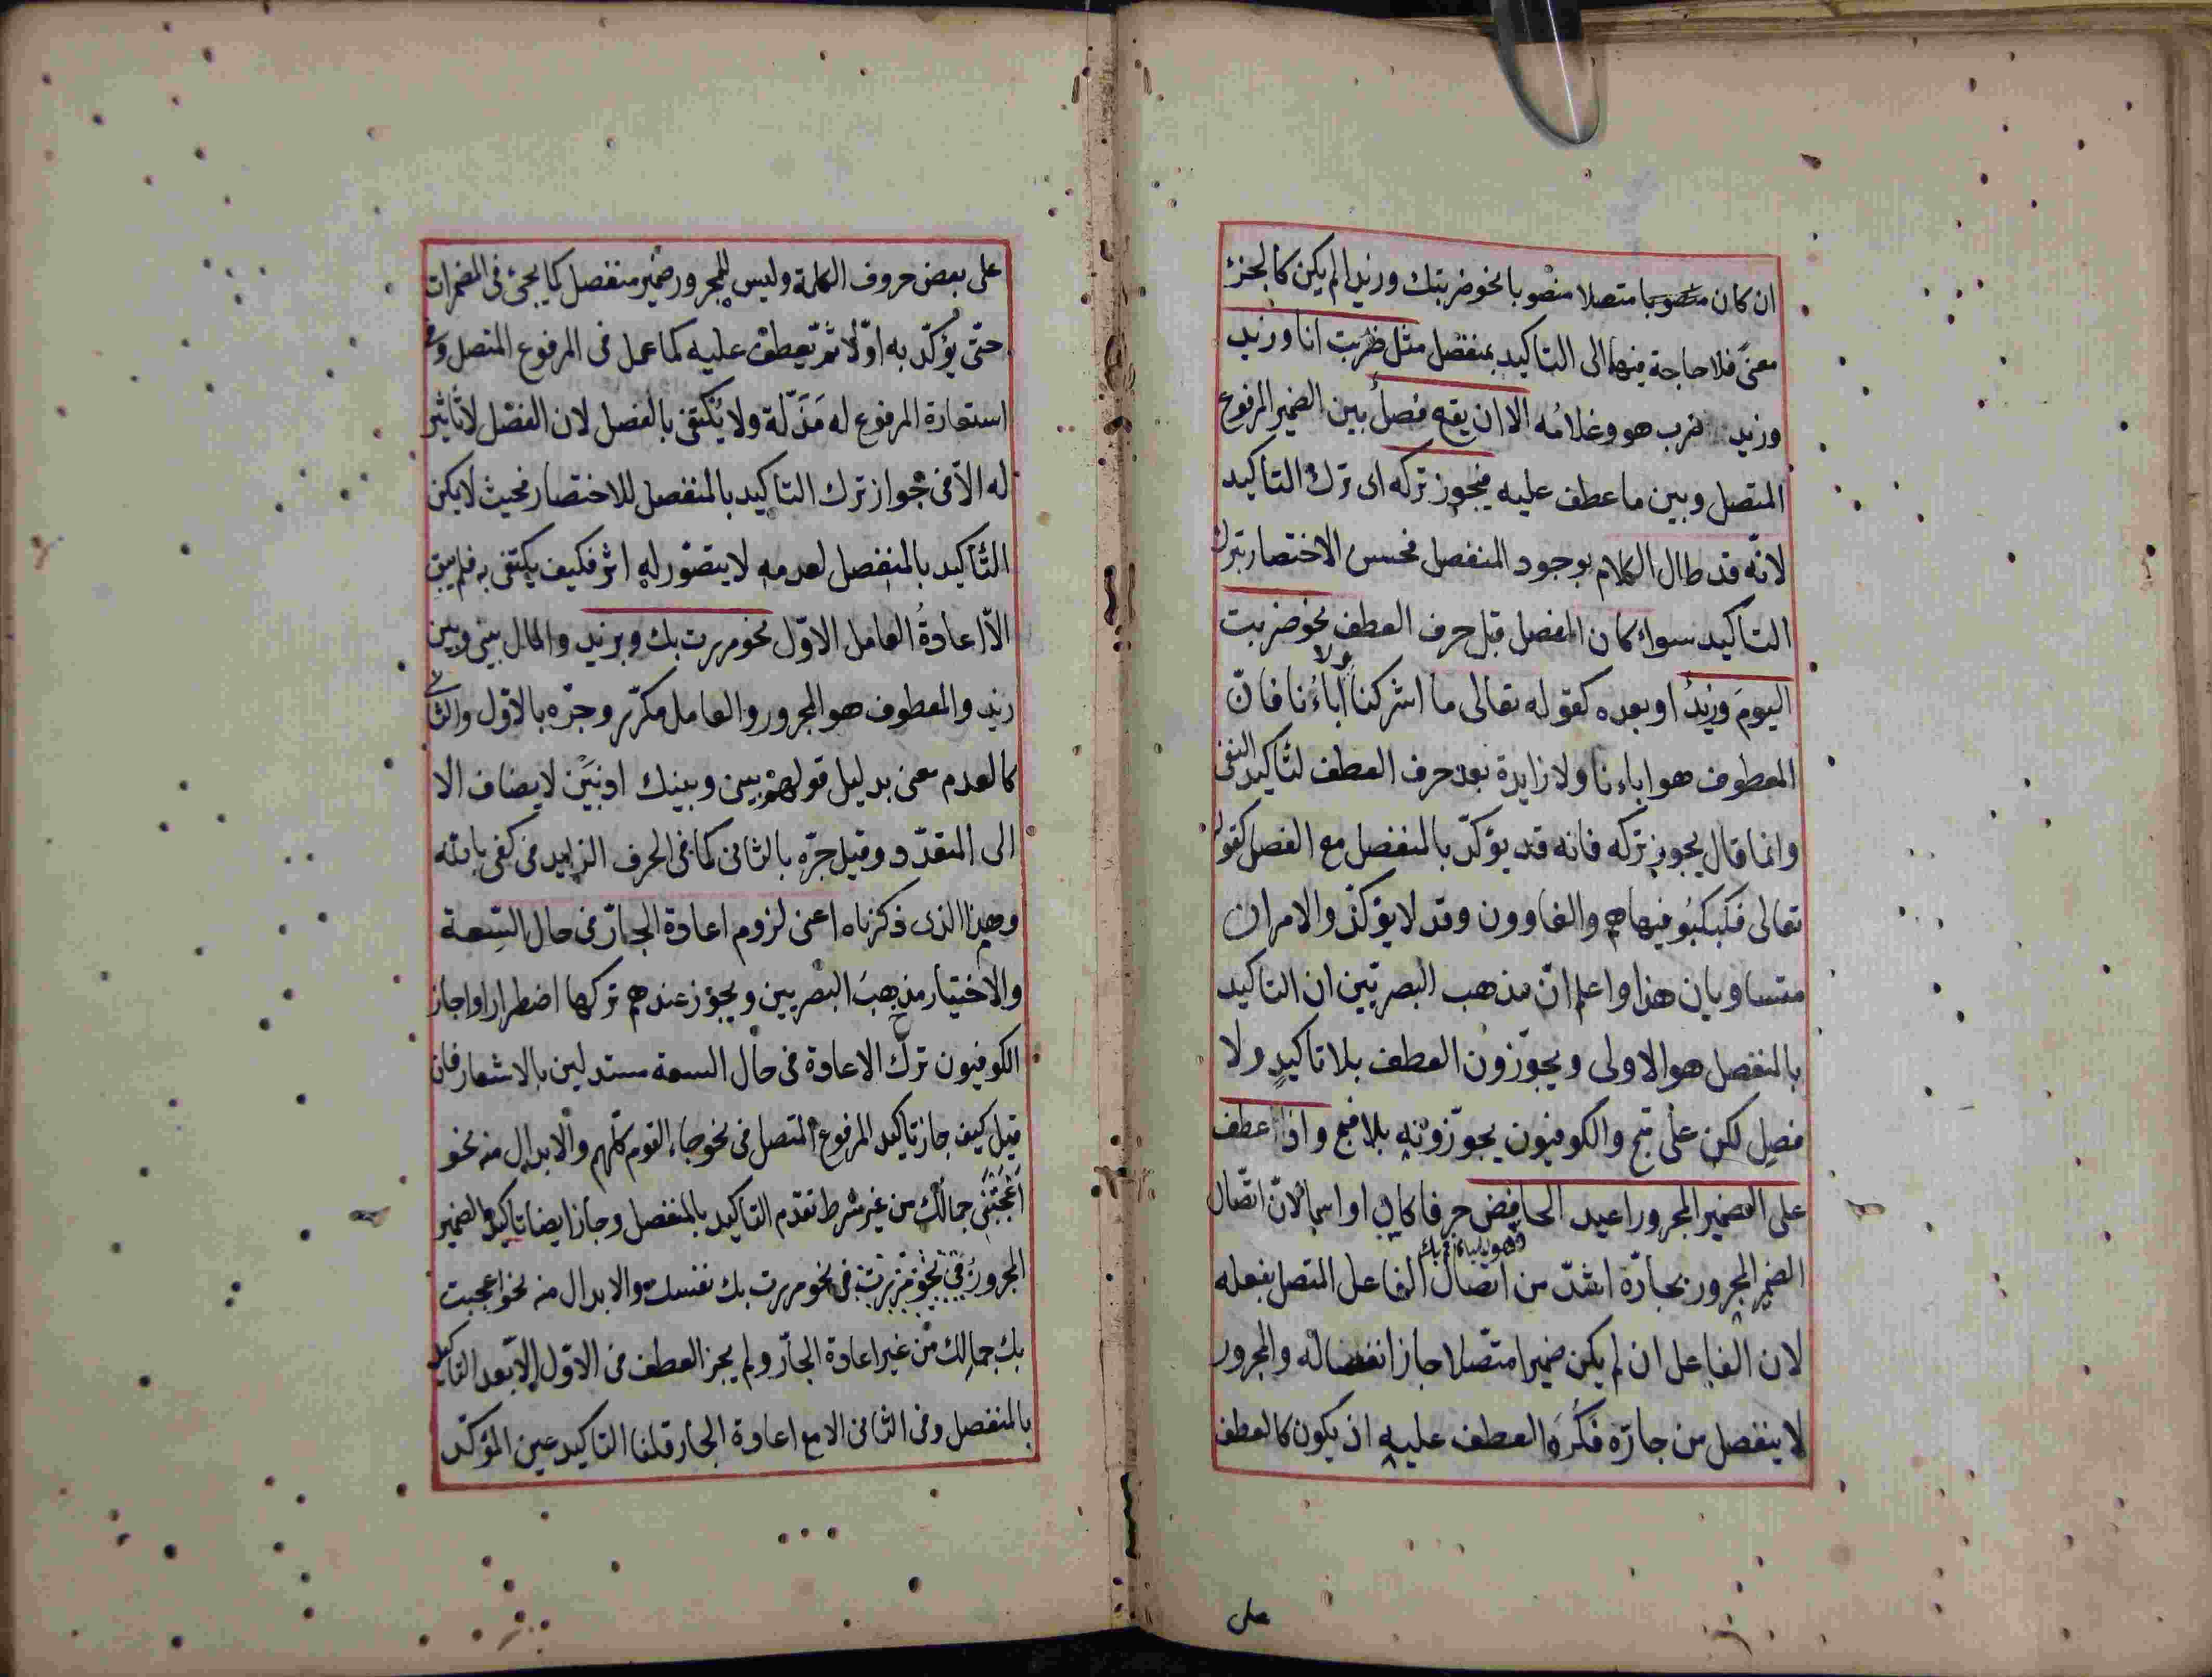 ان كان منصوبا متصلا منصوبا نحو ضربتك وزيدا لم يكن كالجزء
معنىً فلا حاجة فيهما الى التاكيد بمنفصل مثل ضربت انا وزيد
وزيد ضرب هو وغلامُه الا ان يقع فصلٌ بين الضمير المرفوع
المتصل وبين ما عطف عليه فيجوز تركه اى ترك التاكيد
لانّه قد طال الكلام بوجود المنفصل فحسن الاختصار بترك
التاكيد سواء كان الفصل قبل حرف العطف نحو ضربت
اليومَ وزيدٌ او بعده كقوله تعالى ما اشركنا ولا اباءُنا فانّ
المعطوف هو اباءنا ولا زايدة بعد حرف العطف لتاكيد النفى
وانما قال يجوز تركه فانه قد يؤكّد بالمنفصل مع الفصل كقوله
تعالى فكبكبُو فيها هم والغاوون وقد لا يؤكّد والامران
متساويان هذا واعلم انّ مذهب البصريّين ان التاكيد
بالمنفصل هو الاولى ويجوّزون العطف بلا تاكيدٍ ولا
فصلٍ لكن على قبح والكوفيون يجوّزونه بلا قبح واذا عطف
على الضمير المجرور اعيد الخافض حرفا كان او اسما لانّ اتّصال
الضمير المجرور بجارّه اشدّ من اتصال الفاعل المتصل بفعله
لان الفاعل ان لم يكن ضميرا متّصلا جاز انفصاله والمجرور
لا ينفصل من جارّه فكُرِهَ العطف عليه اذ يكون كالعطف
على
على بعض حروف الكلمة وليس للمجرور ضمير منفصل كما يجئ فى المضمرات
حتّى يؤكّد به اوّلا ثمّ يعطف عليه كما عمل فى المرفوع المتصل وفى
استعارة المرفوع له مَذَلّة ولا يُكتفى بالفصل لان الفصل لا تاثير
له الاّ فى جواز ترك التاكيد بالمنفصل للاختصار فحيث لا يمكن
التّاكيد بالمنفصل لعدمه لا يتصوّر له اثر فكيف يكتفى به فلم يبق
الاّ اعادةُ العامل الاوّل نحو مررت بك وبزيد والمال بينى وبين
زيد والمعطوف هو المجرور والعامل مكرّر وجرّه بالاوّل والثانى
كالعدم معنى بدليل قولهم بينى وبينك اذ بَيْن لا يضاف الا
الى المتعدّد وقيل جرّه بالثانى كما فى الحرف الزايد فى كفى بالله
وهذا الذى ذكرناه اعنى لزوم اعادة الجارّ فى حال السّعة
والاختيار مذهبُ البصريين ويجوز عندهم تركها اضطرارا واجاز
الكوفيون ترك الاعادة فى حال السعة مستدلين بالاشعار فان
قيل كيف جاز تاكيد المرفوع المتصل فى نحو جاء القوم كلّهم والابدال منه نحو
اَعْجَبْتَنِى جمالُك من غير شرط تقدم التاكيد بالمنفصل وجاز ايضا تاكيد الضمير
المجرور فى نحو مررت فى نحو مررت بك نفسك والابدال منه نحو اعجبت
بك جمالك من غير اعادة الجارّ ولم يجز العطف فى الاوّل الاّ بعد التاكيد
بالمنفصل وفى الثانى الا مع اعادة الجار قلنا التاكيد عين المؤكّد